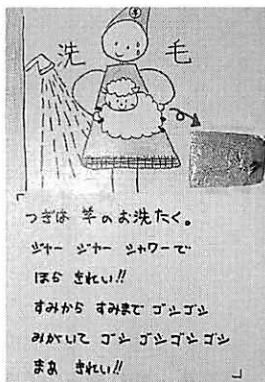 洗毛
「つぎは 羊のお洗たく。
ジャー ジャー シャワーで
ほら きれい!!
すみから すみまで ゴシゴシ
みがいて ゴシ ゴシゴシゴシ
まあ きれい!!」